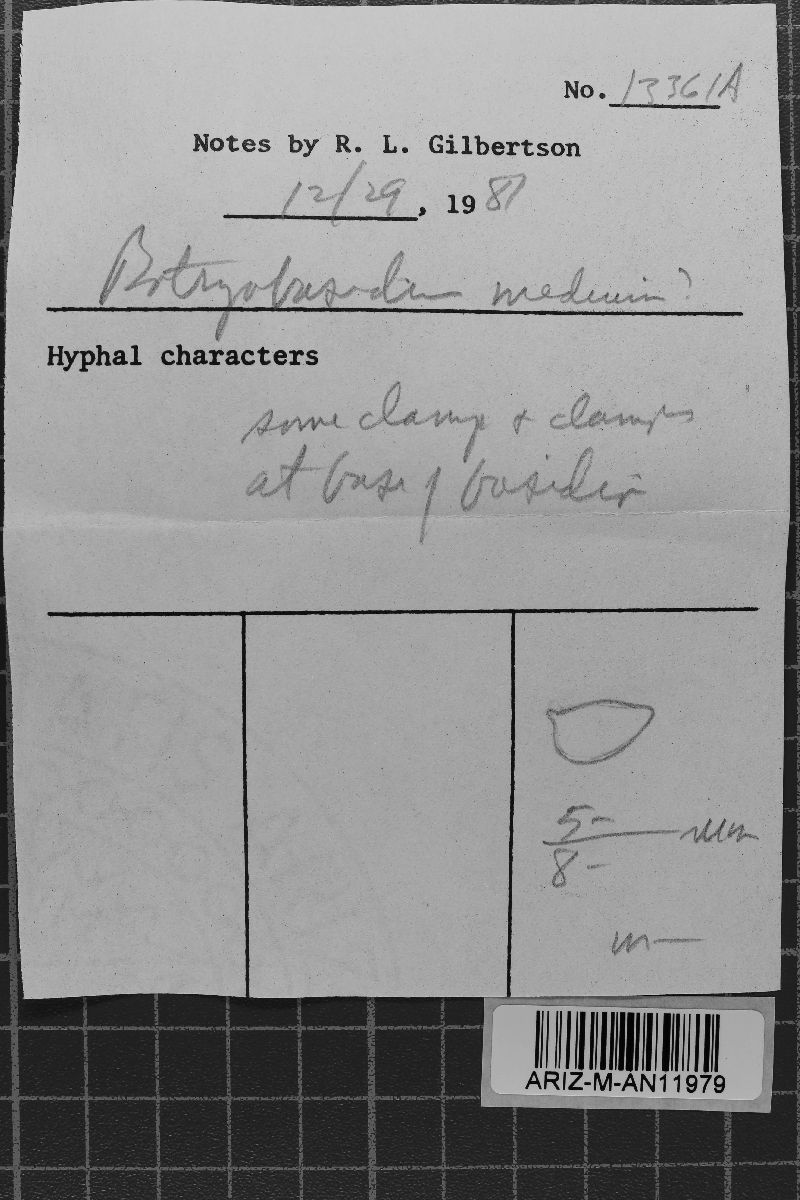 No. 13361A
Notes by R. L. Gilbertson
12/29, 1981
Botryobasidium medium?
Hyphal characters
some clamp & clamps
at base of basidia
5-
8-
m-
ARIZ-M-AN11979